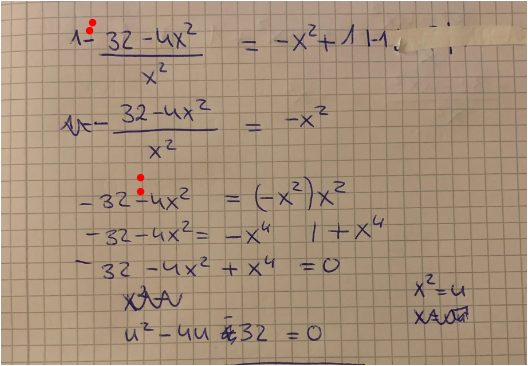 1 - (32 - 4x²)/x² = -x² + 1 |-1
- (32 - 4x²)/x² = -x²
-32 - 4x² = (-x²)x²
-32 - 4x² = -x⁴ | + x⁴
-32 - 4x² + x⁴ = 0
x² = u
u² - 4u - 32 = 0